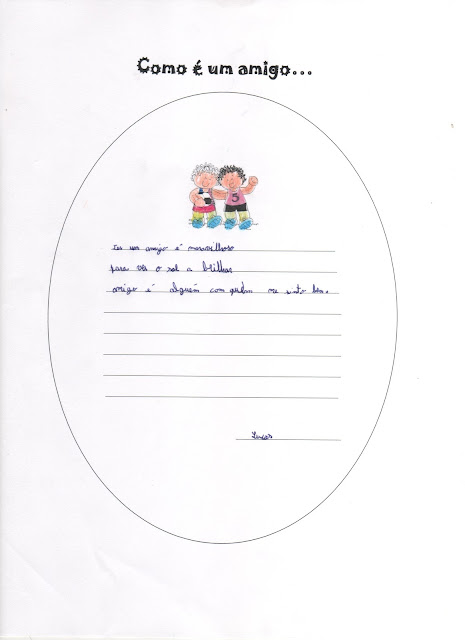 Como é um amigo...
5
Ter um amigo é maravilhoso
para ver o sol a brilhar
amigo é alguém com quem me sinto bem.
Lucas